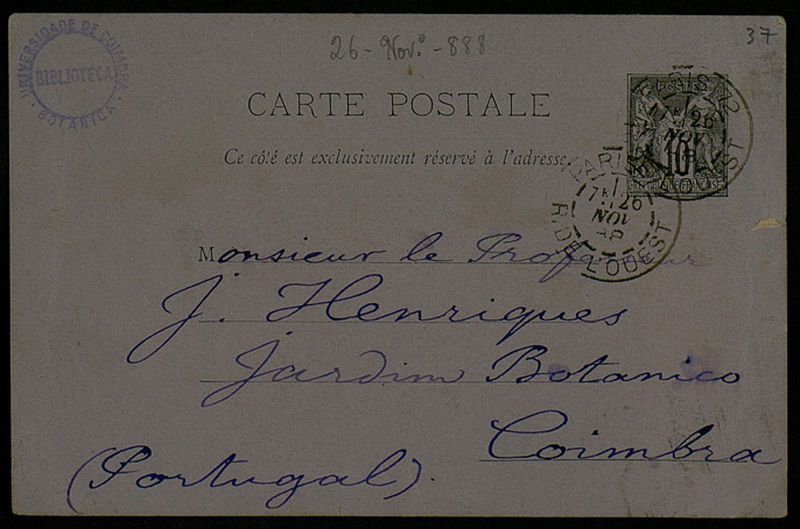 26 - Nov.º - 888
37
UNIVERSIDADE DE COIMBRA
BIBLIOTECA
BOTANICA
CARTE POSTALE
Ce côté est exclusivement réservé à l'adresse.
POSTES
10
PARIS 12
26
NOV
PARIS
7E 26
NOV
88
R. DE L'OUEST
Monsieur le Professeur
J. Henriques
Jardim Botanico
Coimbra
(Portugal).